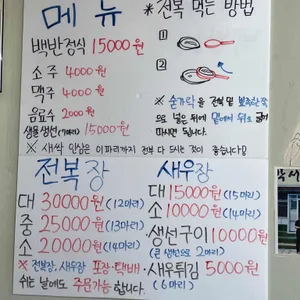 메뉴
백반정식 15000원
소주 4000원
맥주 4000원
음료수 2000원
생물생선(1마리) 15000원
*전복 먹는 방법
1□
2□
※ 숟가락을 전복 및 뾰족한 쪽
으로 넣은 뒤에 밑에서 위로
파시면 됩니다.
※ 새싹 인삼은 이파리까지 전부 다 드시는 것이 좋습니다!
전복장
대 30000원(12마리)
중 25000원(13마리)
소 20000원(14마리)
※ 전복장, 새우장 포장·택배·
쉬는날에도 주문가능합니다.
새우장
대 15000원(15마리)
소 10000원(14마리)
생선구이 10000원
(큰 생선으로 2마리)
새우튀김 5000원
(6마리)